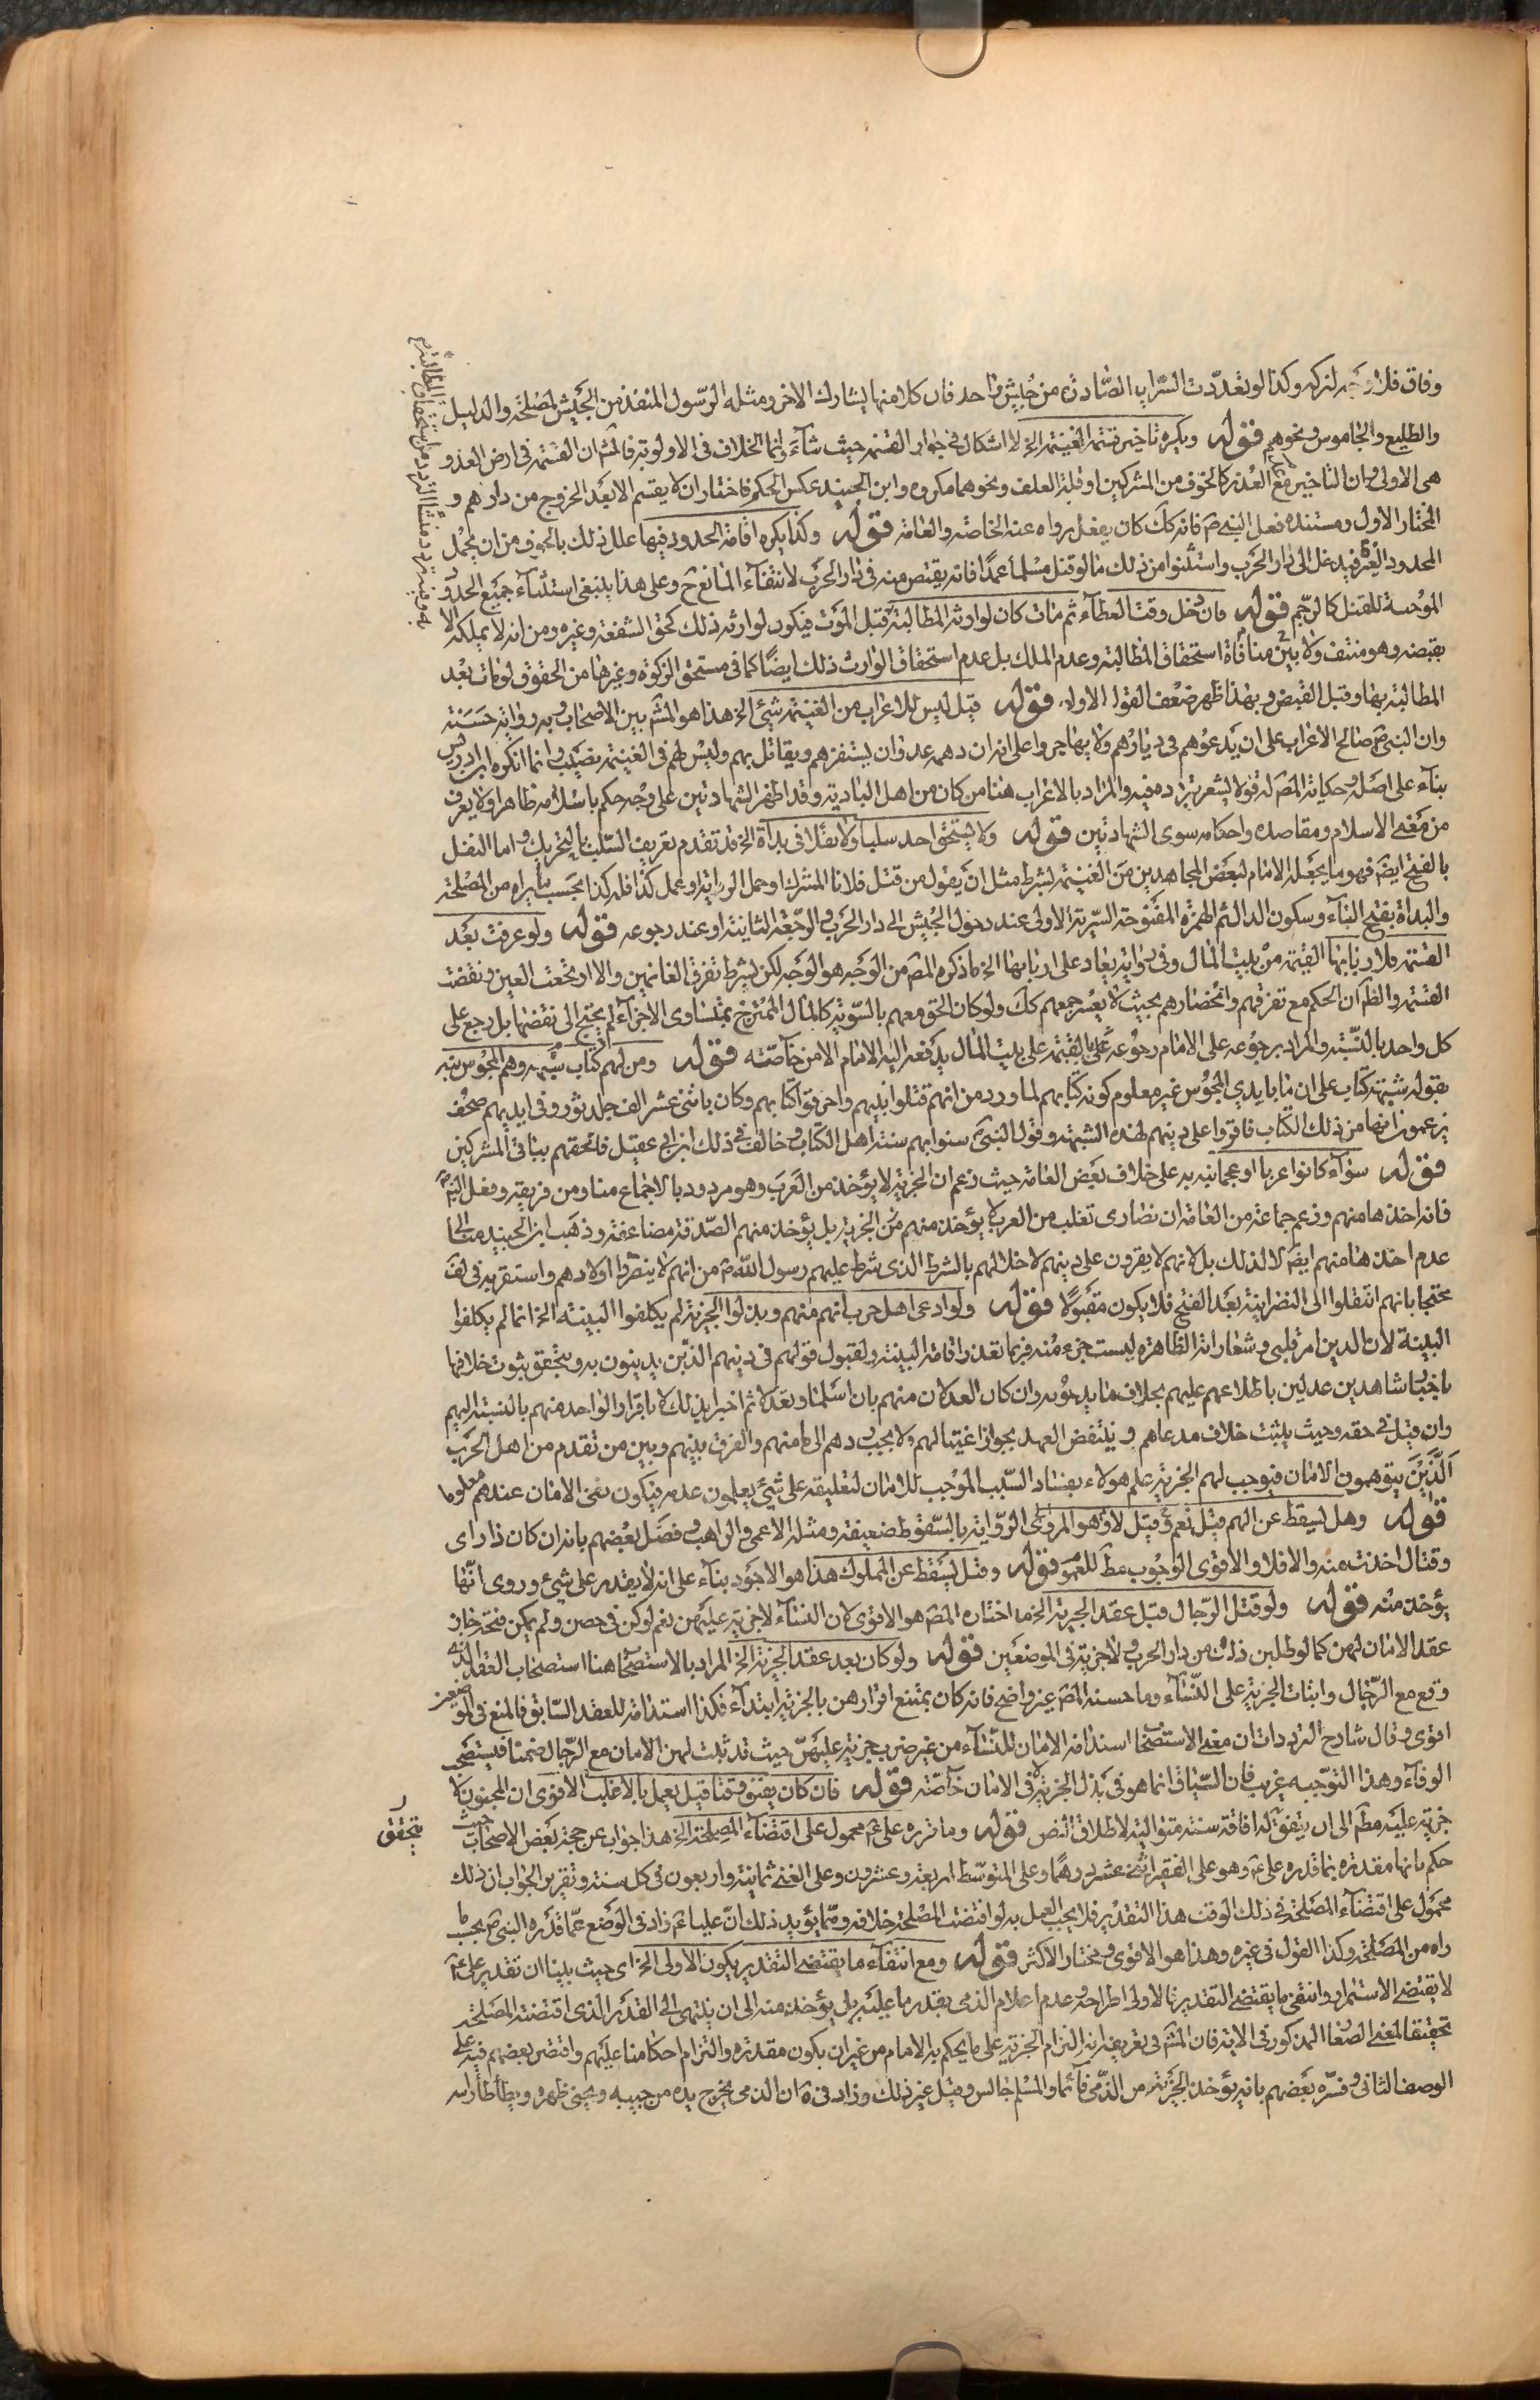 وفاق فلا وجه لتركه وكذا لو تعدّدت السّرايا الصّادرة من جيش واحد فان كلا منها يشارك الاخر ومثله الرّسول المنفذ من الجيش لمصلحة والدليل
والطليع والجاموس ونحوهم قوله ويكره تاخير قسمة الغنيمة الخ لا اشكال في جواز القسمة حيث شآء وانما الخلاف في الاولوية فالمش ان القسمة في ارض العدو
هى الاولى وان التاخير مع العذر كالخوف من المشركين او قلة العلف ونحوهما مكروه وابن الجنيد عكس الحكم فاختار ان لا يقسم الا بعد الخروج من دارهم و
المختار الاول ومستنده فعل النبي ص فانه كك كان يفعل رواه عنه الخاصة والعامة قوله وكذا يكره اقامة الحدود فيها علل ذلك بالخوف من ان يحمل
المحدود الغيرة فيدخل الى دار الحرب واستثنوا من ذلك ما لو قتل مسلما عمدا فانه يقتص منه في دار الحرب لانتفاء المانع ح وعلى هذا ينبغى استثناء جميع الحدود
الموجبة للقتل كالرجم قوله فان دخل وقت العطآء ثم مات كان لوارثه المطالبة قبل الموت فيكون لوارثه ذلك كحق الشفعة وغيره ومن انه لا يملكه الا
بقبضه وهو منتف ولا يبن منافاة استحقاق المطالبة وعدم الملك بل عدم استحقاق الوارث ذلك ايضا كما في مستحق الزكوة وغيرها من الحقوق لو مات بعد
المطالبة بها وقبل القبض وبهذا ظهر ضعف القول الاول قوله قيل ليس للاعراب من الغنيمة شئ الخ هذا هو المش بين الاصحاب وبه رواية حسنة
وان النبي ص صالح الاعراب على ان يدعوهم في ديارهم ولا يهاجروا على انه ان دهمه عدو ان يستفزهم ويقاتل بهم وليس لهم في الغنيمة نصيب وانما انكره ابن ادريس
بناء على اصله وحكاية المص له قولا يشعر بتردده فيه والمراد بالاعراب هنا من كان من اهل البادية وقد اظهر الشهادتين على وجه حكم باسلامه ظاهرا ولا يعرف
من معنى الاسلام ومقاصده واحكامه سوى الشهادتين قوله ولا يستحق احد سلبا ولا نفلا في بداة الخ قد تقدم تعريف السلب بالتحريك واما النفل
بالفتح ايضا فهو ما يجعله الامام لبعض المجاهدين من الغنيمة بشرط مثل ان يقول من قتل فلانا المشرك او حمل الراية او عمل كذا فله كذا بحسب ما يراه من المصلحة
والبداة بفتح الباء وسكون الدال ثم الهمزة المفتوحة السرية الاولى عند دخول الجيش الى دار الحرب والرجعة الثانية او عند رجوعه قوله ولو عرفت بعد
القسمة فلاربابها القيمة من بيت المال وفي رواية يعاد على اربابها الخ ما ذكره المص من الوجه هو الوجه لكن بشرط تفرق الغانمين والا ارتجعت العين ونقضت
القسمة والظ ان الحكم مع تفرقهم وانحصارهم بحيث لا يعسر جمعهم كك ولو كان الحق معهم بالسوية كالمال الممتزج بمتساوى الاجزاء لم يحتج الى نقضها بل رجع على
كل واحد بالنسبة والمراد برجوعه على الامام رجوعه بالقيمة على بيت المال يدفعه اليه الامام لا من خاصته قوله ومن لهم كتاب شبهة وهم المجوس نبه
بقوله شبهة كتاب على ان ما بايدي المجوس غير معلوم كونه كتابهم لما ورد من انهم قتلوا نبيهم واحرقوا كتابهم وكان باثنى عشر الف جلد ثور وفى ايديهم صحف
يزعمون انها من ذلك الكتاب فاقروا على دينهم لهذه الشبهة وقول النبي ص سنوا بهم سنة اهل الكتاب وخالف في ذلك ابن ابي عقيل فالحقهم بباقى المشركين
قوله سواء كانوا عربا او عجما نبه به على خلاف بعض العامة حيث زعم ان الجزية لا يؤخذ من العرب وهو مردود بالاجماع منا ومن فريقه وفعل النبي ص
فانه اخذها منهم وزعم جماعة من العامة ان نصارى تغلب من العرب لا يؤخذ منهم من الجزية بل يؤخذ منهم الصدقة مضاعفة وذهب ابن الجنيد منا الى
عدم اخذها منهم ايضا لا لذلك بل لانهم لا يقرون على دينهم لاخلالهم بالشرط الذى شرط عليهم رسول الله ص من انهم لا ينصروا اولادهم واستقر به في لف
محتجا بانهم انتقلوا الى النصرانية بعد الفتح فلا يكون مقبولا قوله ولو ادعى اهل حرب انهم منهم وبذلوا الجزية لم يكلفوا البينة الخ انما لم يكلفوا
البينة لان الدين امر قلبى وشعاراته الظاهرة ليست جزء منه فربما تعذر اقامة البينة ولقبول قولهم في دينهم الذين يدينون به ويتحقق ثبوت خلافها
باخبار شاهدين عدلين باطلاعهم عليهم بخلاف ما يدعونه وان كان العدلان منهم بان اسلما وعدلا ثم اخبرا بذلك لا باقرار الواحد منهم بالنسبة اليهم
وان قبل في حقه وحيث يثبت خلاف مدعاهم ينتقض العهد بجواز اغتيالهم ولا يجب ردهم الى مامنهم والفرق بينهم وبين من تقدم من اهل الحرب
الذين يتوهمون الامان فيوجب لهم الجزية علم هولاء بفساد السبب الموجب للامان لتعليقه على شئ يعلمون عدمه فيكون نفى الامان عندهم معلوما
قوله وهل يسقط عن الهم قيل نعم وقيل لا وهو المروى الرواية بالسقوط ضعيفة ومثله الاعمى والراهب وفصل بعضهم بانه ان كان ذا راى
وقتال اخذت منه والا فلا والاقوى الوجوب مط للعموم قوله وقيل يسقط عن المملوك هذا هو الاجود بناء على انه لا يقدر على شئ وروى انها
يؤخذ منه قوله ولو قتل الرجال قبل عقد الجزية الخ ما اختاره المص هو الاقوى لان النساء لا جزية عليهن نعم لو كن في حصن ولم يمكن فتحه جاز
عقد الامان لهن كما لو طلبن ذلك من دار الحرب ولا جزية في الموضعين قوله ولو كان بعد عقد الجزية الخ المراد بالاستصحاب هنا استصحاب العقد الذى
وقع مع الرجال واثبات الجزية على النساء وما حسنه المص غير واضح فانه كان يمتنع اقرارهن بالجزية ابتداء فكذا استدامة للعقد السابق فالمنع في الموضعين
اقوى وقال شارح الترددات ان معنى الاستصحاب استدامة الامان للنساء من غير ضرب جزية عليهن حيث قد ثبت لهن الامان مع الرجال ضمنا فيستصحب
الوفاء وهذا التوجيه غريب فان السياق انما هو في بذل الجزية لا في الامان خاصة قوله فان كان يفيق وقتا قيل يعمل بالاغلب الاقوى ان المجنون لا
جزية عليه مط الى ان يتفق له افاقة سنة متوالية لاطلاق النص قوله وما قرره على ع محمول على اقتضاء المصلحة الخ هذا جواب عن حجة بعض الاصحاب حيث
حكم بانها مقدرة بما قدره على ع وهو على الفقير اثنى عشر درهما وعلى المتوسط اربعة وعشرون وعلى الغنى ثمانية واربعون في كل سنة وتقرير الجواب ان ذلك
محمول على اقتضاء المصلحة في ذلك الوقت هذا التقدير فلا يجب العمل به لو اقتضت المصلحة خلافه ومما يؤيد ذلك ان عليا ع زاد في الوضع عما قدره النبي ص بحسب ما
راه من المصلحة وكذا القول في غيره وهذا هو الاقوى ومختار الاكثر قوله ومع انتفاء ما يقتضى التقدير يكون الاولى الخ اى حيث بينا ان تقدير على ع
لا يقتضى الاستمرار وانتفى ما يقتضى التقدير فالاولى اطراحه وعدم اعلام الذمى بقدر ما عليه بل يؤخذ منه الى ان ينتهى الى القدر الذى اقتضته المصلحة
تحقيقا لمعنى الصغار المذكور في الاية فان المش في تعريفه انه التزام الجزية على ما يحكم به الامام من غير ان يكون مقدرة والتزام احكامنا عليهم واقتصر بعضهم فيه على
الوصف الثانى وفسره بعضهم بانه يؤخذ الجزية من الذمى قائما والمسلم جالس وقيل غير ذلك وزاد في ة ان الذمى يخرج يده من جيبه ويحنى ظهره ويطأطأ راسه
يتحقق